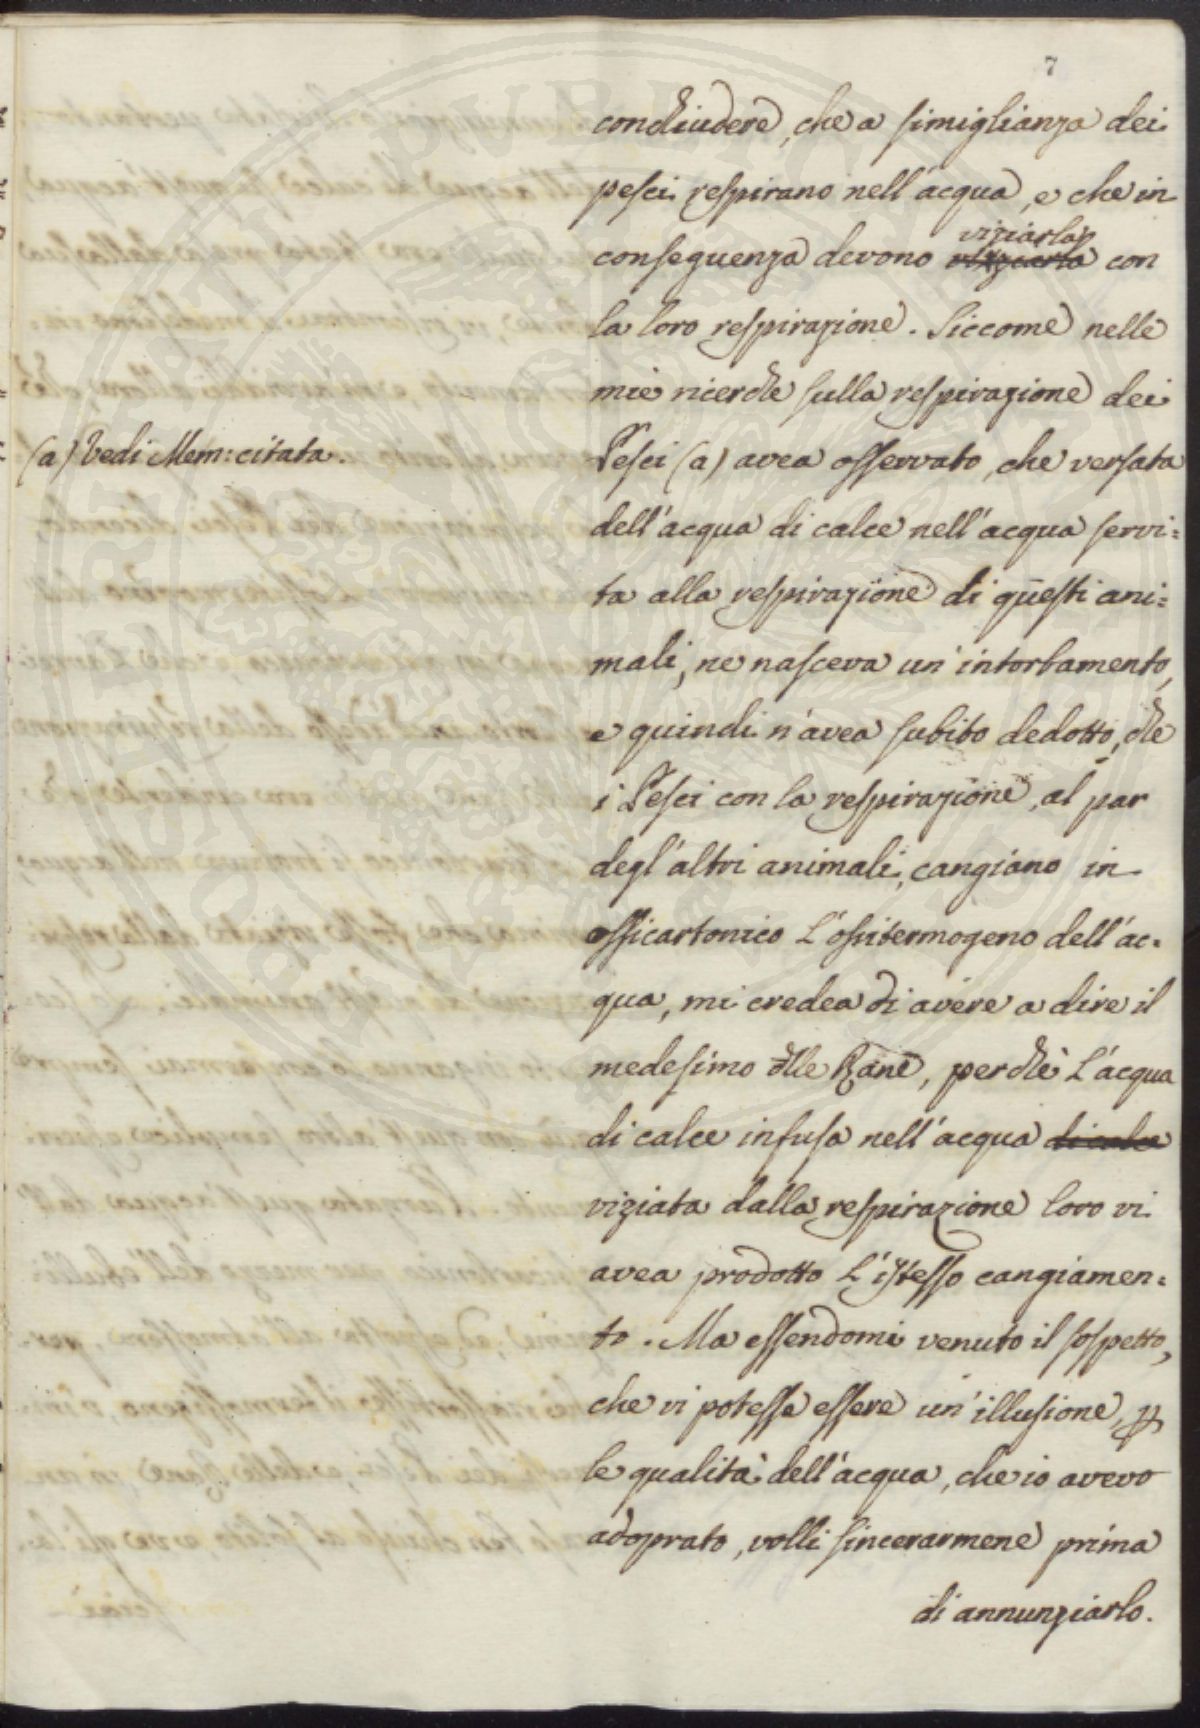 7
conchiudere, che a simiglianza dei
pesci respirano nell'acqua, e che in
conseguenza devono viziarla con
la loro respirazione. Siccome nelle
mie ricerche sulla respirazione dei
(a) Vedi Mem: citata.
Pesci (a) avea osservato, che versata
dell'acqua di calce nell'acqua servi=
ta alla respirazione di questi ani=
mali, ne nasceva un'intorbamento,
e quindi n'avea subito dedotto, che
i Pesci con la respirazione, al par
degl'altri animali, cangiano in
ossicarbonico l'ossitermogeno dell'ac=
qua, mi credea di avere a dire il
medesimo delle Rane, perchè l'acqua
di calce infusa nell'acqua di calce
viziata dalla respirazione loro vi
avea prodotto l'istesso cangiamen=
to. Ma essendomi venuto il sospetto,
che vi potesse essere un'illusione, p
le qualità dell'acqua, che io avevo
adoprato, volli sincerarmene prima
di annunziarlo.